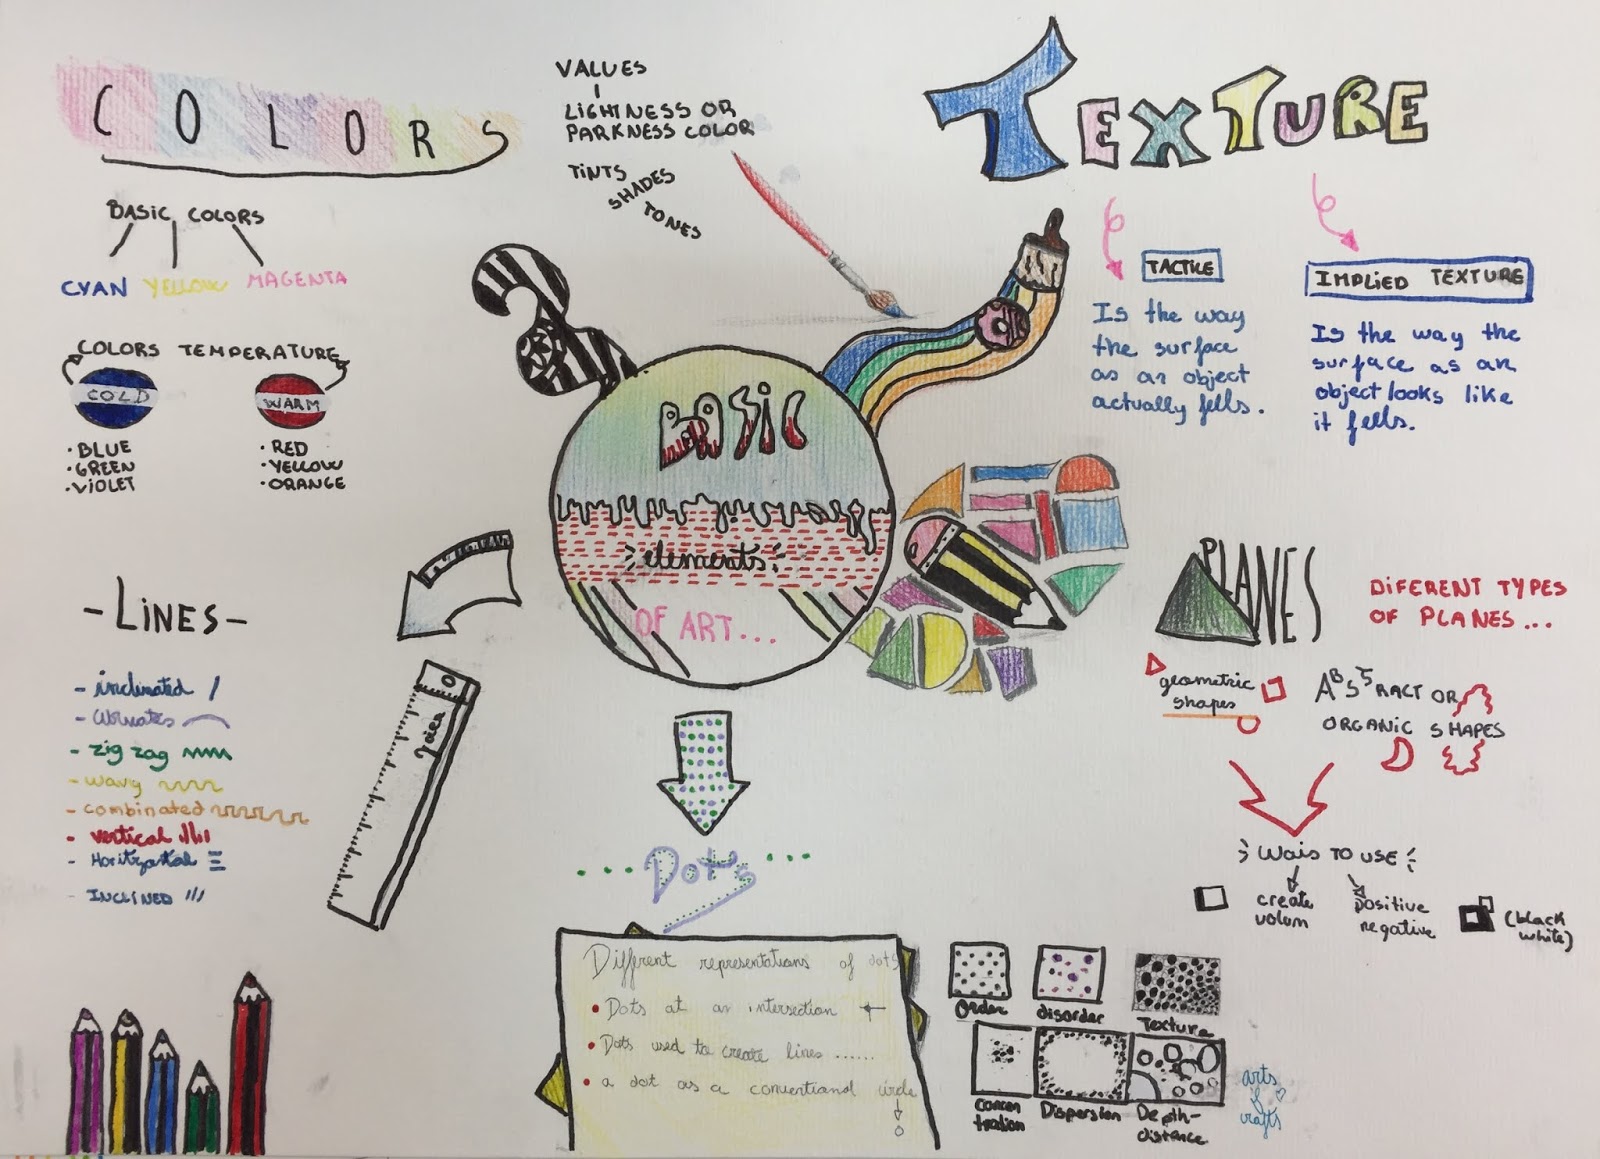 COLORS
BASIC COLORS
CYAN YELLOW MAGENTA
COLORS TEMPERATURE
COLD
WARM
· BLUE
· GREEN
· VIOLET
· RED
· YELLOW
· ORANGE
VALUES
LIGHTNESS OR
PARKNESS COLOR
TINTS
SHADES
TONES
TEXTURE
TACTILE
Is the way
the surface
as an object
actually fells.
IMPLIED TEXTURE
Is the way the
surface as an
object looks like
it fells.
BASIC
elements
OF ART...
- LINES -
- inclinated
- zig zag
- wavy
- combinated
- vertical
- Horitzontal
- INCLINED
PLANES
DIFERENT TYPES
OF PLANES...
geometric
shapes
ABSTRACT OR
ORGANIC SHAPES
WAIS TO USE
create
volum
positive
negative
(black
white)
Dots
Different representations of dots
• Dots at an intersection
• Dots used to create lines ......
• a dot as a conventional circle
Order
disorder
Texture
Concen
tration
Dispersion
Depth-
distance
arts
&
crafts